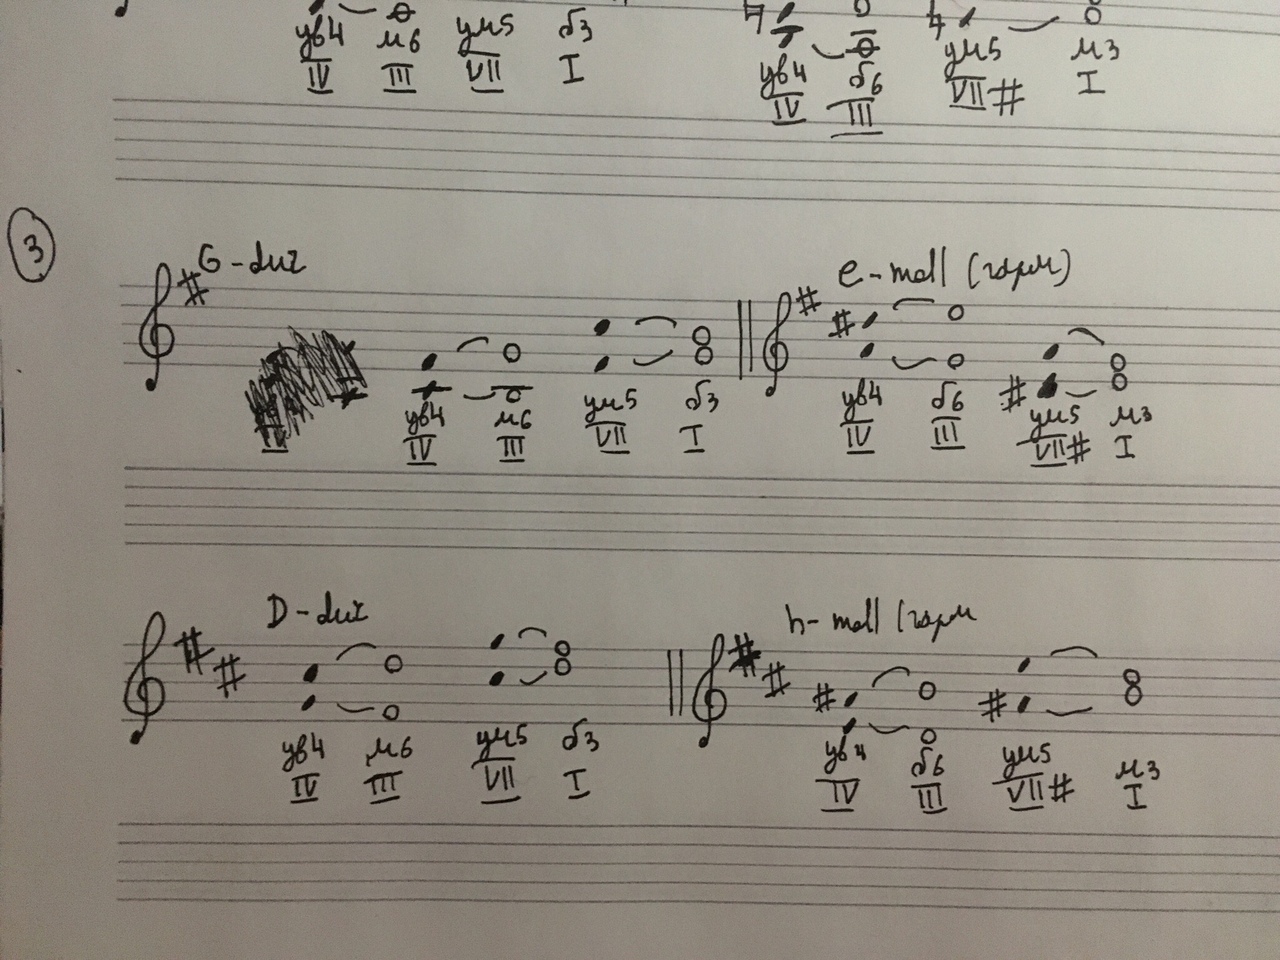 ув4 м6 ум5 б3 ув4 б6 ум5 м3
IV III VII I IV III VII# I
3
G-dur e-moll (гарм)
ув4 м6 ум5 б3 ув4 б6 ум5 м3
IV III VII I IV III VII# I
D-dur h-moll (гарм
ув4 м6 ум5 б3 ув4 б6 ум5 м3
IV III VII I IV III VII# I